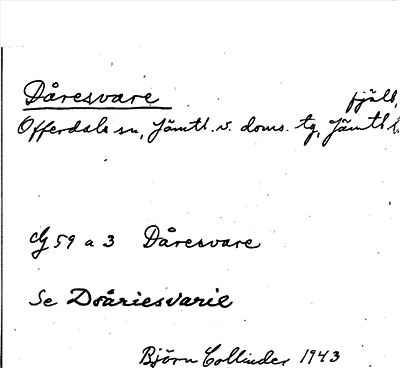 Dåresvare fjäll,
Offerdals sn, Jämtl. v. doms. tg, Jämtl l.
dg 59 a 3 Dåresvare
Se Dråriesvarie
Björn Collinder 1943